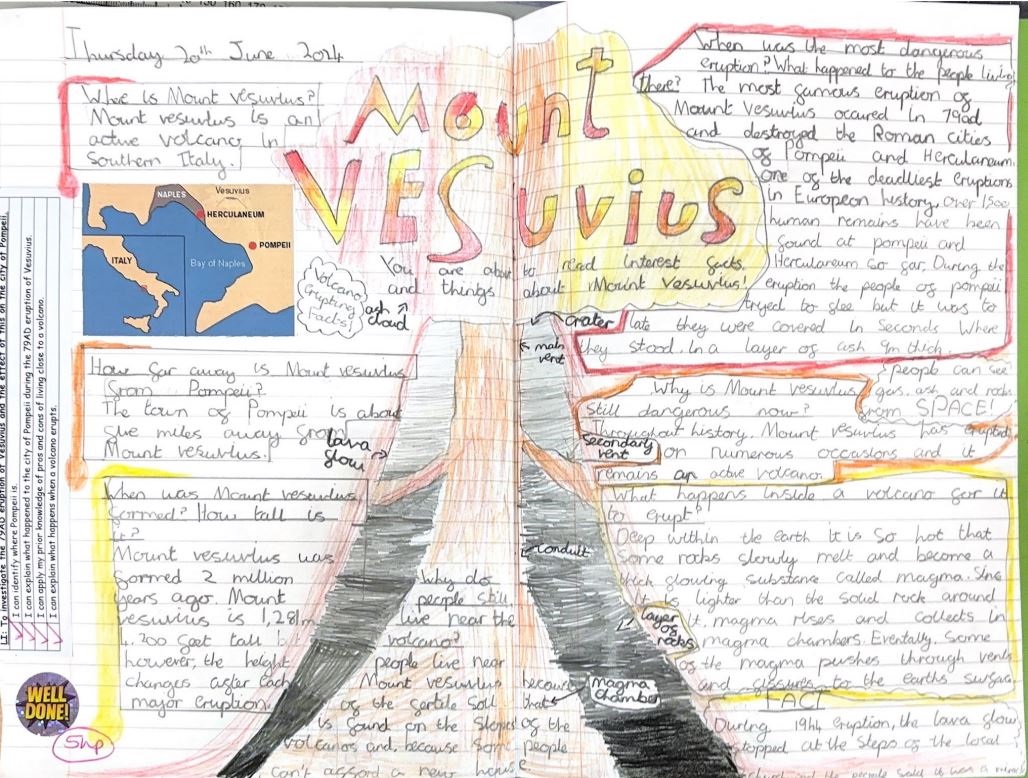 Thursday 20th June 2024
Mount
VESuvius
Where is Mount Vesuvius?
Mount vesuvius is an
active volcano in
Southern Italy.
NAPLES
Vesuvius
HERCULANEUM
POMPEII
ITALY
Bay of Naples
Volcano
Erupting
Facts!
You are about to read interest facts
and things about Mount Vesuvius!
ash
cloud
crater
main
vent
lava
flow
Secondary
vent
conduit
layer
of
rocks
magma
chamber
How far away is Mount vesuvius
from Pompeii?
The town of Pompeii is about
five miles away from
Mount vesuvius.
When was Mount vesuvius
formed? How tall is
it?
Mount vesuvius was
formed 2 million
years ago. Mount
vesuvius is 1,281m
4,200 feet tall
however, the height
changes after each
major eruption.
Why do
people still
live near the
volcano?
people live near
Mount vesuvius because
of the fertile soil that
is found on the slopes of the
volcanos and, because some people
can't afford a new house
When was the most dangerous
eruption? What happened to the people living
there? The most famous eruption of
Mount Vesuvius occured in 79ad
and destroyed the Roman cities
of Pompeii and Herculaneum.
one of the deadliest eruptions
in European history. Over 1500
human remains have been
found at pompeii and
Herculaneum so far. During the
eruption the people of pompeii
tryed to flee but it was to
late they were covered in Seconds Where
they stood. In a layer of ash 9m thich
people can see
gas, ash and rocks
from SPACE!
Why is Mount vesuvius
still dangerous now?
Throughout history, Mount vesuvius has erupted
on numerous occasions and it
remains an active volcano.
What happens inside a volcano for it
to erupt?
Deep within the earth it is so hot that
Some rocks slowly melt and become a
thick flowing substance called magma. Sinc
it is lighter than the solid rock around
it, magma rises and collects in
magma chambers. Eventally, Some
of the magma pushes through vents
and fissures to the earths surfac
FACT
During 1944 eruption, the lava flow
stopped at the steps of the local
LI: To investigate the 79AD eruption of Vesuvius and the effect of this on the city of Pompeii.
I can identify where Pompeii is.
I can explain what happened to the city of Pompeii during the 79AD eruption of Vesuvius.
I can apply my prior knowledge of pros and cons of living close to a volcano.
I can explain what happens when a volcano erupts.
WELL
DONE!
5hp